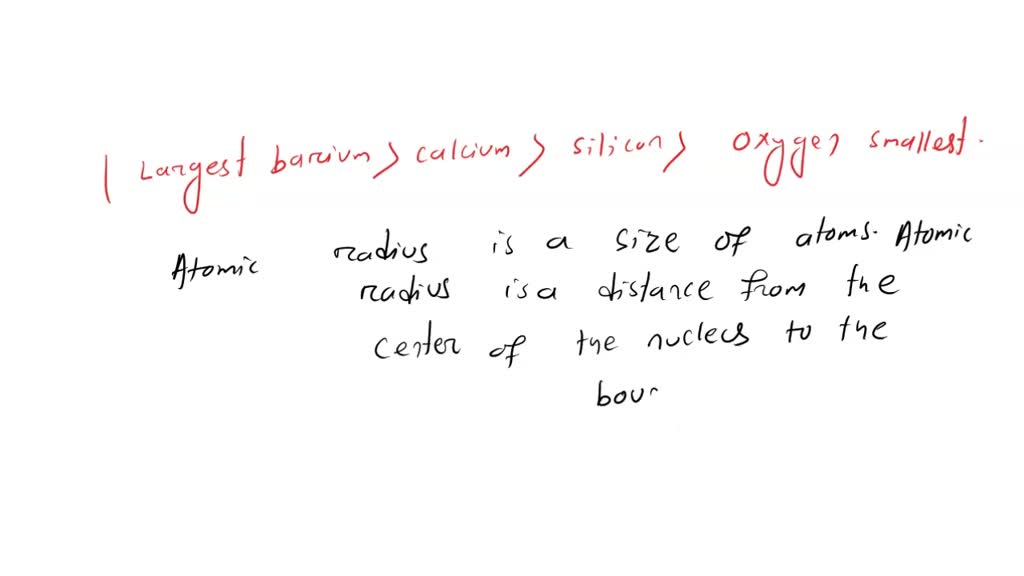 | Largest barium > calcium > silicon > oxygen smallest.
Atomic radius is a size of atoms. Atomic
radius is a distance from the
center of the nucleus to the
boun